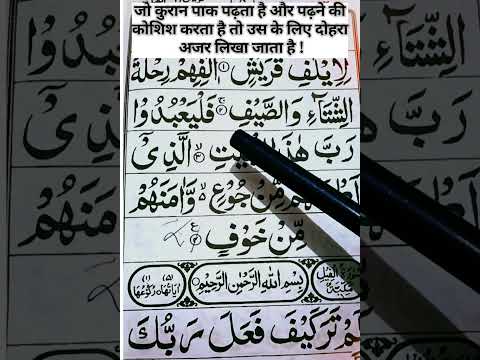 जो कुरान पाक पढ़ता है और पढ़ने की
कोशिश करता है तो उस के लिए दोहरा
अजर लिखा जाता है !
لِاِيْلٰفِ قُرَيْشٍ ۙ۱ اٖلٰفِهِمْ رِحْلَةَ
الشِّتَآءِ وَالصَّيْفِ ۚ۲ فَلْيَعْبُدُوْا
رَبَّ هٰذَا الْبَيْتِ ۙ۳ الَّذِیْۤ
مِّنْ جُوْعٍ ۙ وَّاٰمَنَهُمْ
مِّنْ خَوْفٍ ۴
بِسْمِ اللّٰهِ الرَّحْمٰنِ الرَّحِيْمِ
اَلَمْ تَرَ كَيْفَ فَعَلَ رَبُّكَ